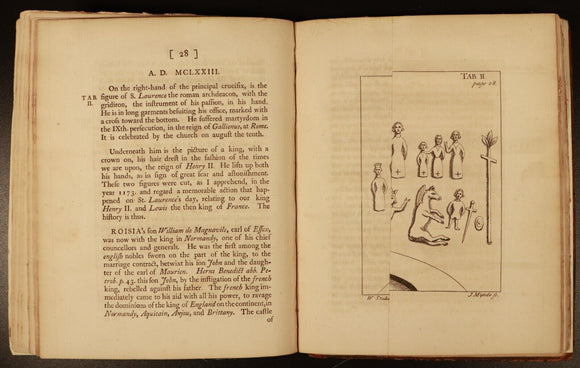 [ 28 ]
A. D. MCLXXIII.
On the right-hand of the principal crucifix, is the
TAB. figure of S. Laurence the roman archdeacon, with the
II. gridiron, the instrument of his passion, in his hand.
He is in long garments besuiting his office, marked with
a cross toward the bottom. He suffered martyrdom in
the IXth. persecution, in the reign of Gallienus, at Rome.
It is celebrated by the church on august the tenth.
Underneath him is the picture of a king, with a
crown on, his hair drest in the fashion of the times
we are upon, the reign of Henry II. He lifts up both
his hands, as in sign of great fear and astonishment.
These two figures were cut, as I apprehend, in the
year 1173. and regard a memorable action that hap-
pened on St. Laurence's day, relating to our king
Henry II. and Lewis the then king of France. The
history is thus.
ROISIA's son William de Magnavile, earl of Essex,
was now with the king in Normandy, one of his chief
councellors and generals. He was the first among the
english nobles sworn on the part of the king, to the
marriage contract, betwixt his son John and the daugh-
ter of the earl of Maurien. Hence Benedict abb. Pe-
trob. p. 43. this son John, by the instigation of the french
king, rebelled against his father. The french king im-
mediately came to his aid with all his power, to ravage
the dominions of the king of England on the continent, in
Normandy, Aquitain, Anjou, and Brittany. The castle
of
TAB. II.
page 28.
W. Stuke
J. Mynde sc.